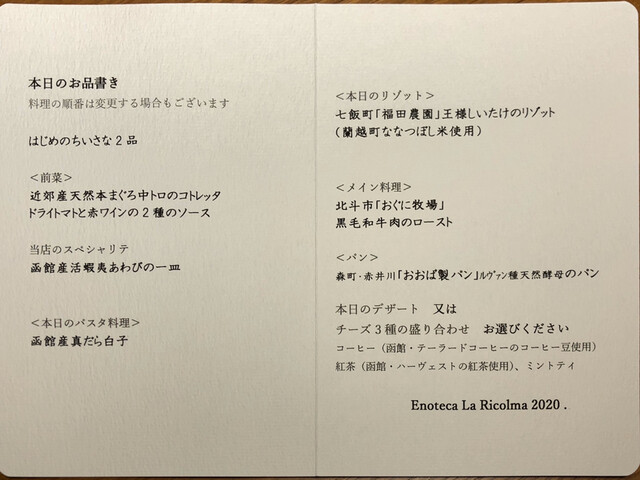 本日のお品書き
料理の順番は変更する場合もございます
はじめのちいさな2品
<前菜>
近郊産天然本まぐろ中トロのコトレッタ
ドライトマトと赤ワインの2種のソース
当店のスペシャリテ
函館産活蝦夷あわびの一皿
<本日のパスタ料理>
函館産真だら白子
<本日のリゾット>
七飯町「福田農園」王様しいたけのリゾット
(蘭越町ななつぼし米使用)
<メイン料理>
北斗市「おぐに牧場」
黒毛和牛肉のロースト
<パン>
森町・赤井川「おおば製パン」ルヴァン種天然酵母のパン
本日のデザート 又は
チーズ3種の盛り合わせ お選びください
コーヒー(函館・テーラードコーヒーのコーヒー豆使用)
紅茶(函館・ハーヴェストの紅茶使用)、ミントティ
Enoteca La Ricolma 2020 .